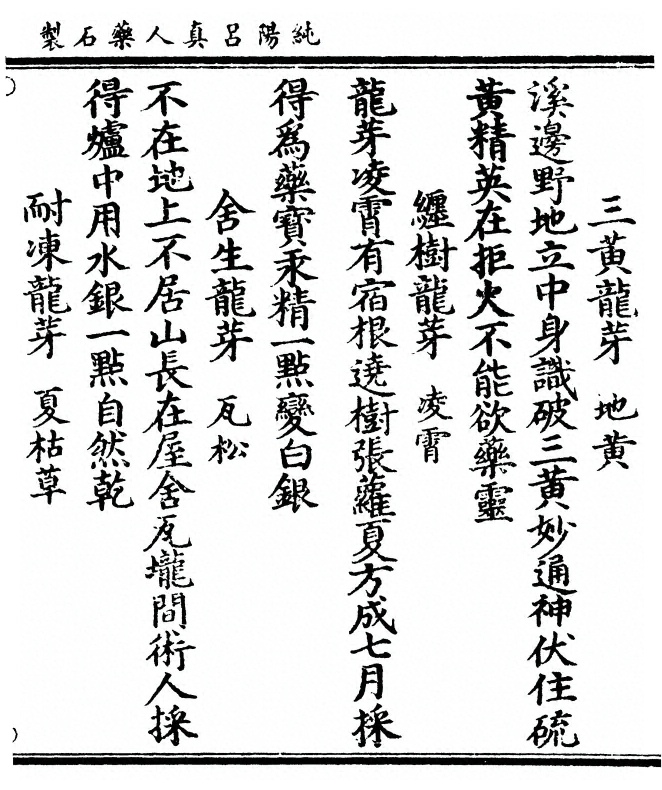 純陽呂真人藥石製
三黃龍芽 地黄
溪邊野地立中身識破三黃妙通神伏住硫
黃精英在拒火不能欲藥靈
纏樹龍芽 凌霄
龍芽凌霄有宿根遶樹張蘿夏方成七月採
得爲藥寳汞精一點變白銀
舍生龍芽 瓦松
不在地上不居山長在屋舍瓦壠間術人採
得爐中用水銀一點自然乾
耐凍龍芽 夏枯草